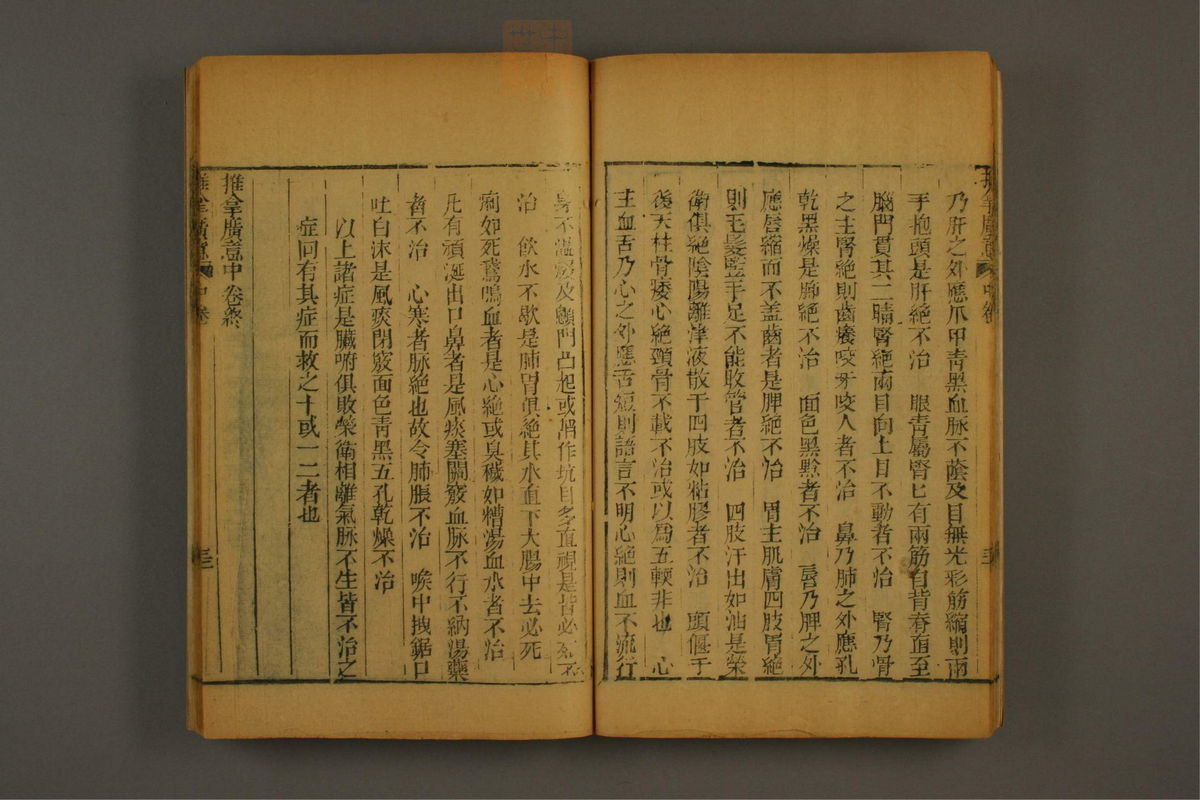 乃肝之外應爪甲靑黑血脉不蔭及目無光形筋縮則兩
手抱頭是肝絶不治　眼靑屬腎匕有兩筋自背脊直至
腦門貫其二睛腎絶兩目向上目不動者不治　腎乃骨
之主腎絶則齒癢咬牙咬人者不治　鼻乃肺之外應孔
乾黑燥是肺絶不治　面色黑黲者不治　唇乃脾之外
應唇縮而不盖齒者是脾絶不治　胃主肌膚四肢胃絶
則毛髮竪手足不能收管者不治　四肢汗出如油是榮
衛俱絶陰陽離津液散于四肢如粘膠者不治　頭偃于
後天柱骨痿心絶頸骨不載不治或以爲五輭非也　心
主血舌乃心之外應舌短則語言不明心絶則血不流行
身不溫及顖門凸起或陷作坑目多直視是皆必死不
治　飲水不歇是肺胃俱絶其水直下大腸中去必死
痢如死鵞鴨血者是心絶或臭穢如糟湯血水者不治
凡有頑涎出口鼻者是風痰塞關竅血脉不行不納湯藥
者不治　心寒者脉絶也故令肺脹不治　喉中拽鋸口
吐白沫是風痰閉竅面色靑黑五孔乾燥不治
以上諸症是臟腑俱敗榮衛相離氣脉不生皆不治之
症間有其症而救之十或一二者也
推拿廣意中卷終
推拿廣意　中卷　三